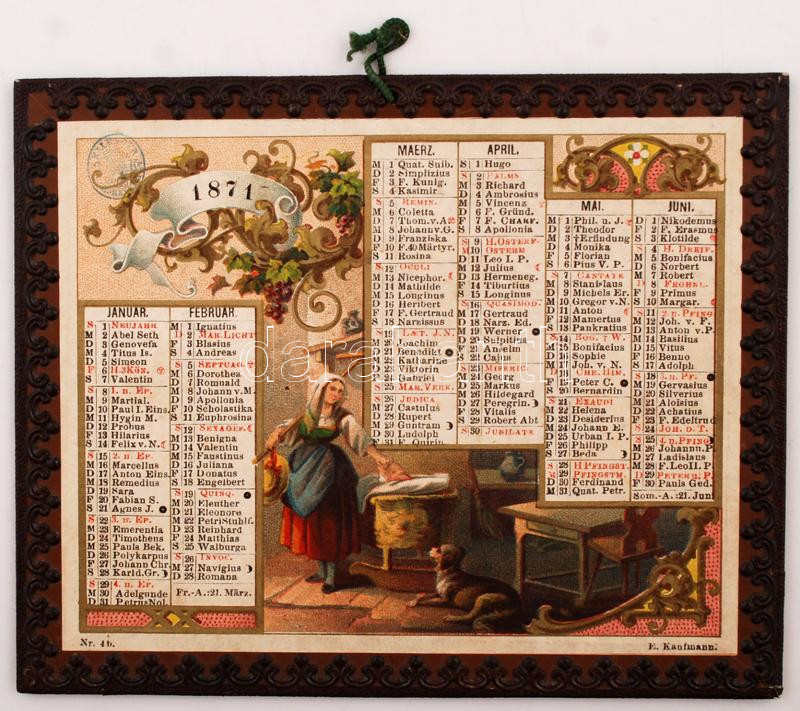 1871
JANUAR.
S 1 NEUJAHR
M 2 Abel Seth
D 3 Genovefa
M 4 Titus Is.
D 5 Simeon
F 6 H.3 KÖN.
S 7 Valentin
S 8 1. n. Ep.
M 9 Martial.
D 10 Paul I. Eins.
M 11 Hygin M.
D 12 Probus
F 13 Hilarius
S 14 Felix v. N.
S 15 2. n. Ep.
M 16 Marcellus
D 17 Anton Eins.
M 18 Remedius
D 19 Sara
F 20 Fabian S.
S 21 Agnes J.
S 22 3. n. Ep.
M 23 Emerentia
D 24 Timotheus
M 25 Pauls Bek.
D 26 Polykarpus
F 27 Johann Chr.
S 28 Karld. Gr.
S 29 4. n. Ep.
M 30 Adelgunde
D 31 Petrus Nol.
FEBRUAR.
M 1 Ignatius
D 2 MAR. LICHT
F 3 Blasius
S 4 Andreas
S 5 SEPTUAG.
M 6 Dorothea
D 7 Romuald
M 8 Johann v. M.
D 9 Apolonia
F 10 Scholastika
S 11 Euphrosius
S 12 SEXAGES.
M 13 Benigna
D 14 Valentin
M 15 Faustina
D 16 Juliana
F 17 Donatus
S 18 Engelbert
S 19 QUINQ.
M 20 Eleuther
D 21 Eleonore
M 22 Petri Stuhlf.
D 23 Reinhard
F 24 Matthias
S 25 Walburga
S 26 INVOC.
M 27 Navigius
D 28 Romana
Fr.-A.:21. März.
MAERZ.
M 1 Quat. Suib.
D 2 Simplizius
F 3 F. Kunig.
S 4 Kasimir
S 5 REMIN.
M 6 Coletta
D 7 Thom. v. A.
M 8 Johann v. G.
D 9 Franziska
F 10 F. 40 Märtyr.
S 11 Rosina
S 12 OCULI
M 13 Nicephor.
D 14 Mathilde
M 15 Longinus
D 16 Heribert
F 17 F. Gertraud
S 18 Narzissus
S 19 LÆT. J. N.
M 20 Joachim
D 21 Benedikt
M 22 Katharine
D 23 Viktorin
F 24 Gabriel
S 25 MAR. VERK.
S 26 JUDICA
M 27 Castulus
D 28 Rupert
M 29 Guntram
D 30 Ludolph
F 31 F. Quirin
APRIL.
S 1 Hugo
S 2 PALMS
M 3 Richard
D 4 Ambrosius
M 5 Vincenz
D 6 F. Gründ.
F 7 F. CHARF.
S 8 Apollonia
S 9 H. OSTERF.
M 10 OSTERM
D 11 Leo I. P.
M 12 Julius
D 13 Hermeneg.
F 14 Tiburtius
S 15 Longinus
S 16 QUASIMOD.
M 17 Gertraud
D 18 Narz. Ed.
M 19 Werner
D 20 Sulpitius
F 21 Anselm
S 22 Cajus
S 23 MISERIC.
M 24 Georg
D 25 Markus
M 26 Hildegard
D 27 Peregrin.
F 28 Vitalis
S 29 Robert Abt
S 30 JUBILATE
MAI.
M 1 Phil. u. J.
D 2 Theodor
M 3 †Erfindung
D 4 Monika
F 5 Florian
S 6 Pius V. P.
S 7 CANTATE
M 8 Stanislaus
D 9 Michels Er.
M 10 Gregor v. N.
D 11 Anton
F 12 Mamertus
S 13 Pankratius
S 14 ROG. 7 W.
M 15 Bonifacius
D 16 Sophie
M 17 Joh. v. N.
D 18 CHR. HIM.
F 19 Peter C.
S 20 Bernardin
S 21 EXAUDI
M 22 Helena
D 23 Desiderius
M 24 Johann E.
D 25 Urban I. P.
F 26 Philipp
S 27 Beda
S 28 H PFINGST.
M 29 PFINGSTM.
D 30 Ferdinand
M 31 Quat. Petr.
JUNI.
D 1 Nikodemus
F 2 F. Erasmus
S 3 Klotilde
S 4 H. DREIF.
M 5 Bonifacius
D 6 Norbert
M 7 Robert
D 8 FROHNL.
F 9 Primus
S 10 Margar.
S 11 2. n. PFING
M 12 Joh. v. F.
D 13 Anton v. P.
M 14 Basilius
D 15 Vitus
F 16 Benno
S 17 Adolph
S 18 3. n. Pf.
M 19 Gervasius
D 20 Silverius
M 21 Aloisius
D 22 Achatius
F 23 F. Edeltrud
S 24 JOH. D. T.
S 25 4. n. Pfing
M 26 Johann u. P.
D 27 Ladislaus
M 28 F. Leo II. P.
D 29 PETER U. P.
F 30 Pauls Ged.
Som.-A.:21. Juni
Nr. 4b.
E. Kaufmann.
darabanth